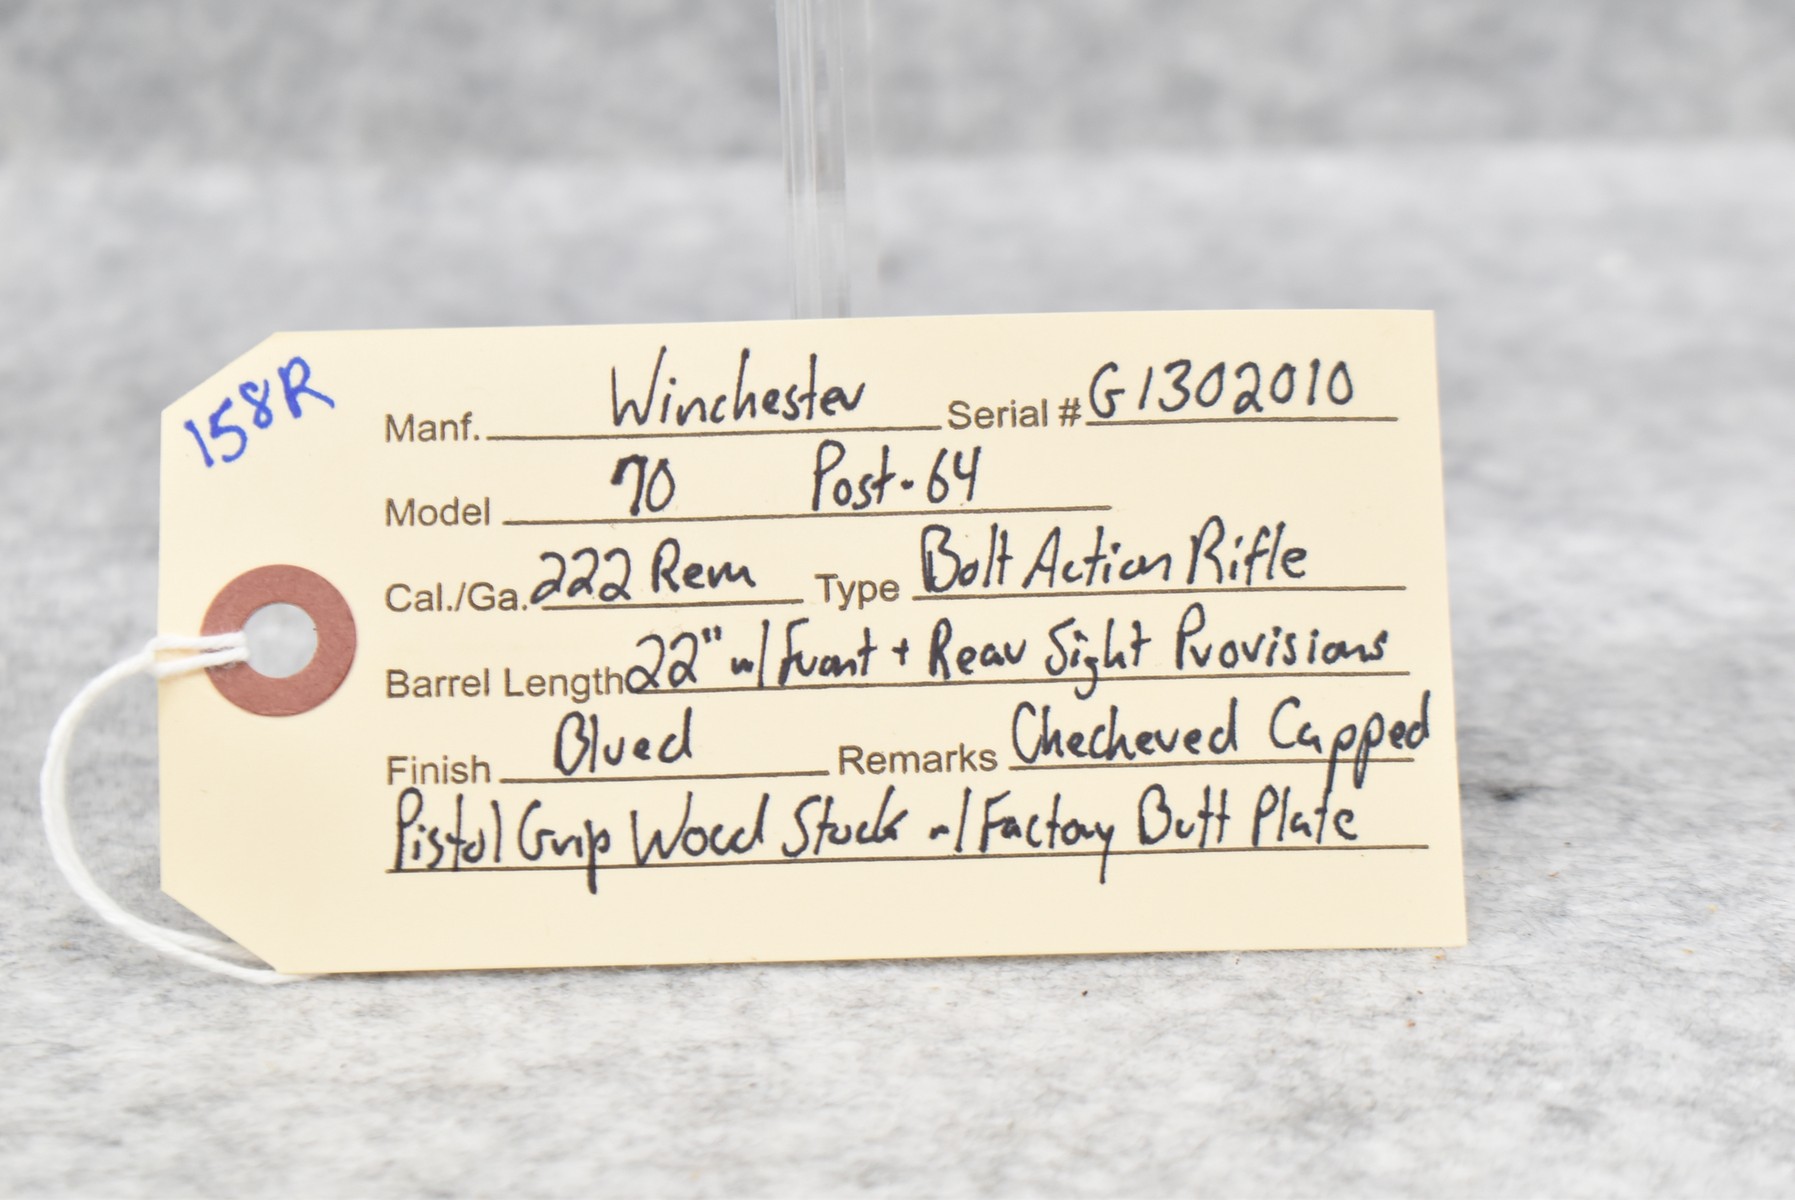 158R
Manf. Winchester Serial # G1302010
Model 70 Post-64
Cal./Ga. 222 Rem Type Bolt Action Rifle
Barrel Length 22" w/ Front + Rear Sight Provisions
Finish Blued Remarks Checkered Capped
Pistol Grip Wood Stock w/ Factory Butt Plate